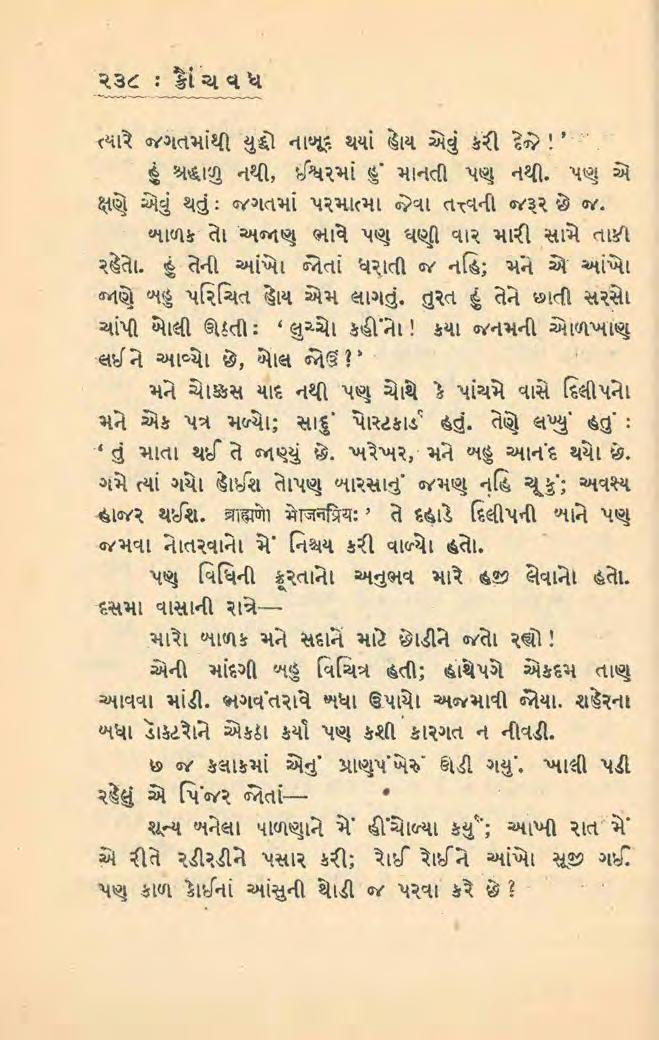 ૨૩૮ : ક્રૌંચવધ
ત્યારે જગતમાંથી યુદ્ધો નાબૂદ થયાં હોય એવું કરી દેજે !’
હું શ્રદ્ધાળુ નથી, ઈશ્વરમાં હું માનતી પણ નથી. પણ એ
ક્ષણે એવું થતું: જગતમાં પરમાત્મા જેવા તત્ત્વની જરૂર છે જ.
બાળક તો અજાણ ભાવે પણ ઘણી વાર મારી સામે તાકી
રહેતો. હું તેની આંખો જોતાં ધરાતી જ નહિ; મને એ આંખો
જાણે બહુ પરિચિત હોય એમ લાગતું. તુરત હું તેને છાતી સરસો
ચાંપી બોલી ઊઠતી: ‘લુચ્ચો કહીંનો! કયા જનમની ઓળખાણ
લઈને આવ્યો છે, બોલ જોઉં?’
મને ચોક્કસ યાદ નથી પણ ચોથે કે પાંચમે વાસે દિલીપનો
મને એક પત્ર મળ્યો; સાદું પોસ્ટકાર્ડ હતું. તેણે લખ્યું હતું :
‘તું માતા થઈ તે જાણ્યું છે. ખરેખર, મને બહુ આનંદ થયો છે.
ગમે ત્યાં ગયો હોઈશ તોપણ બારસાનું જમણ નહિ ચૂકું; અવશ્ય
હાજર થઈશ. ब्राह्मणो भोजनप्रियः’ તે દહાડે દિલીપની બાને પણ
જમવા નોતરવાનો મેં નિશ્ચય કરી વાળ્યો હતો.
પણ વિધિની ક્રૂરતાનો અનુભવ મારે હજી લેવાનો હતો.
દસમા વાસાની રાત્રે—
મારો બાળક મને સદાને માટે છોડીને જતો રહ્યો!
એની માંદગી બહુ વિચિત્ર હતી; હાથેપગે એકદમ તાણ
આવવા માંડી. ભગવંતરાવે બધા ઉપાયો અજમાવી જોયા. શહેરના
બધા ડૉક્ટરોને એકઠા કર્યા પણ કશી કારગત ન નીવડી.
છ જ કલાકમાં એનું પ્રાણપંખેરું ઊડી ગયું. ખાલી પડી
રહેલું એ પિંજર જોતાં—
શૂન્ય બનેલા પાળણાને મેં હીંચોળ્યા કર્યું; આખી રાત મેં
એ રીતે રડીરડીને પસાર કરી; રોઈ રોઈને આંખો સૂજી ગઈ.
પણ કાળ કોઈનાં આંસુની થોડી જ પરવા કરે છે?